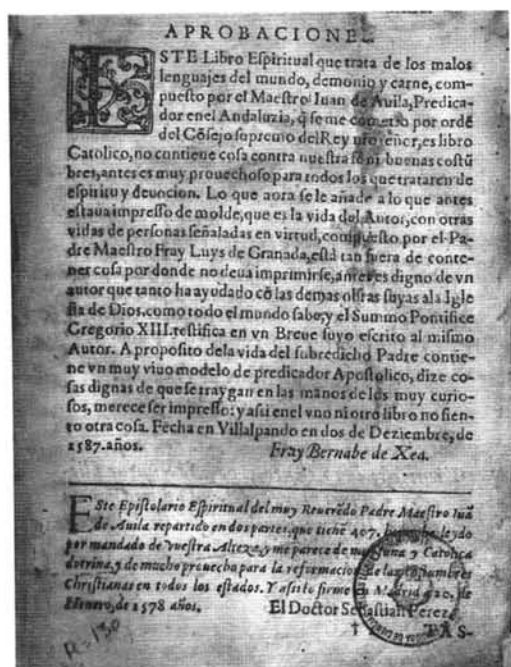 APROBACIONE
ESTE Libro Eſpiritual que trata de los malos
lenguajes del mundo, demonio y carne, com-
pueſto por el Maeſtro Iuan de Auila, Predica-
dor en el Andaluzia, q̃ ſe me cometio por ordẽ
del Cõſejo ſupremo del Rey nr̃o ſeñor, es libro
Catolico, no contiene coſa contra nueſtra fè ni buenas coſtũ
bres, antes es muy prouechoſo para todos los que trataren de
eſpiritu y deuocion. Lo que aora ſe le añade a lo que antes
eſtaua impreſſo de molde, que es la vida del Autor, con otras
vidas de perſonas ſeñaladas en virtud, compueſto por el Pa-
dre Maeſtro Fray Luys de Granada, eſtà tan fuera de conte-
ner coſa por donde no deua imprimirſe, antes es digno de vn
autor que tanto ha ayudado cõ las demas obras ſuyas a la Igle
ſia de Dios, como todo el mundo ſabe, y el Summo Pontifice
Gregorio XIII. teſtifica en vn Breue ſuyo eſcrito al miſmo
Autor. A propoſito de la vida del ſobredicho Padre contie-
ne vn muy viuo modelo de predicador Apoſtolico, dize co-
ſas dignas de que ſe traygan en las manos de los muy curio-
ſos, merece ſer impreſſo: y aſsi en el vno ni otro libro no ſien-
to otra coſa. Fecha en Villalpando en dos de Deziembre, de
1587. años. Fray Bernabe de Xea.
ESte Epiſtolario Eſpiritual del muy Reuerẽdo Padre Maeſtro Iuã
de Auila repartido en dos partes, que tiene 407. he leydo
por mandado de vueſtra Alteza, y me parece de muy ſana y Catolica
dotrina, y de mucho prouecho para la reformacion de las coſtumbres
Chriſtianas en todos los eſtados. Y aſsi lo firme en Madrid a 20. de
Henero, de 1578 años. El Doctor Sebaſtian Perez.
† TAS-
R-130